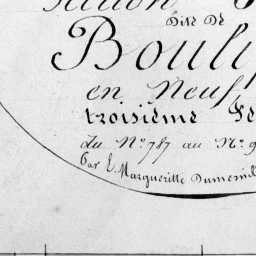 Section
Dite De
Bouli
en Neuf
troisième Fe
du N° 787 au N° 9
Par E. Marguerite Dumesnil